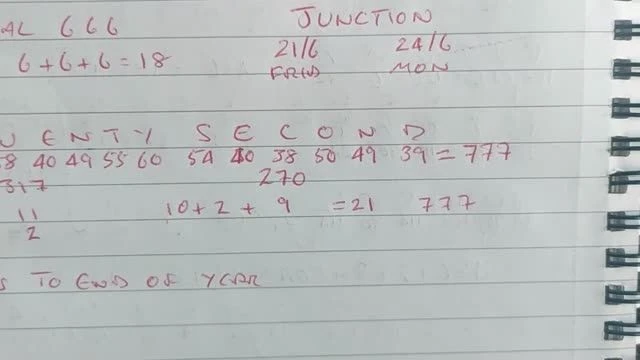 AL 666 JUNCTION
6+6+6=18 21/6 24/6
FRID MON
U E N T Y S E C O N D
58 40 49 55 60 54 40 38 50 49 39 = 777
317 270
11 10+2+9 =21 777
2
S TO END OF YEAR